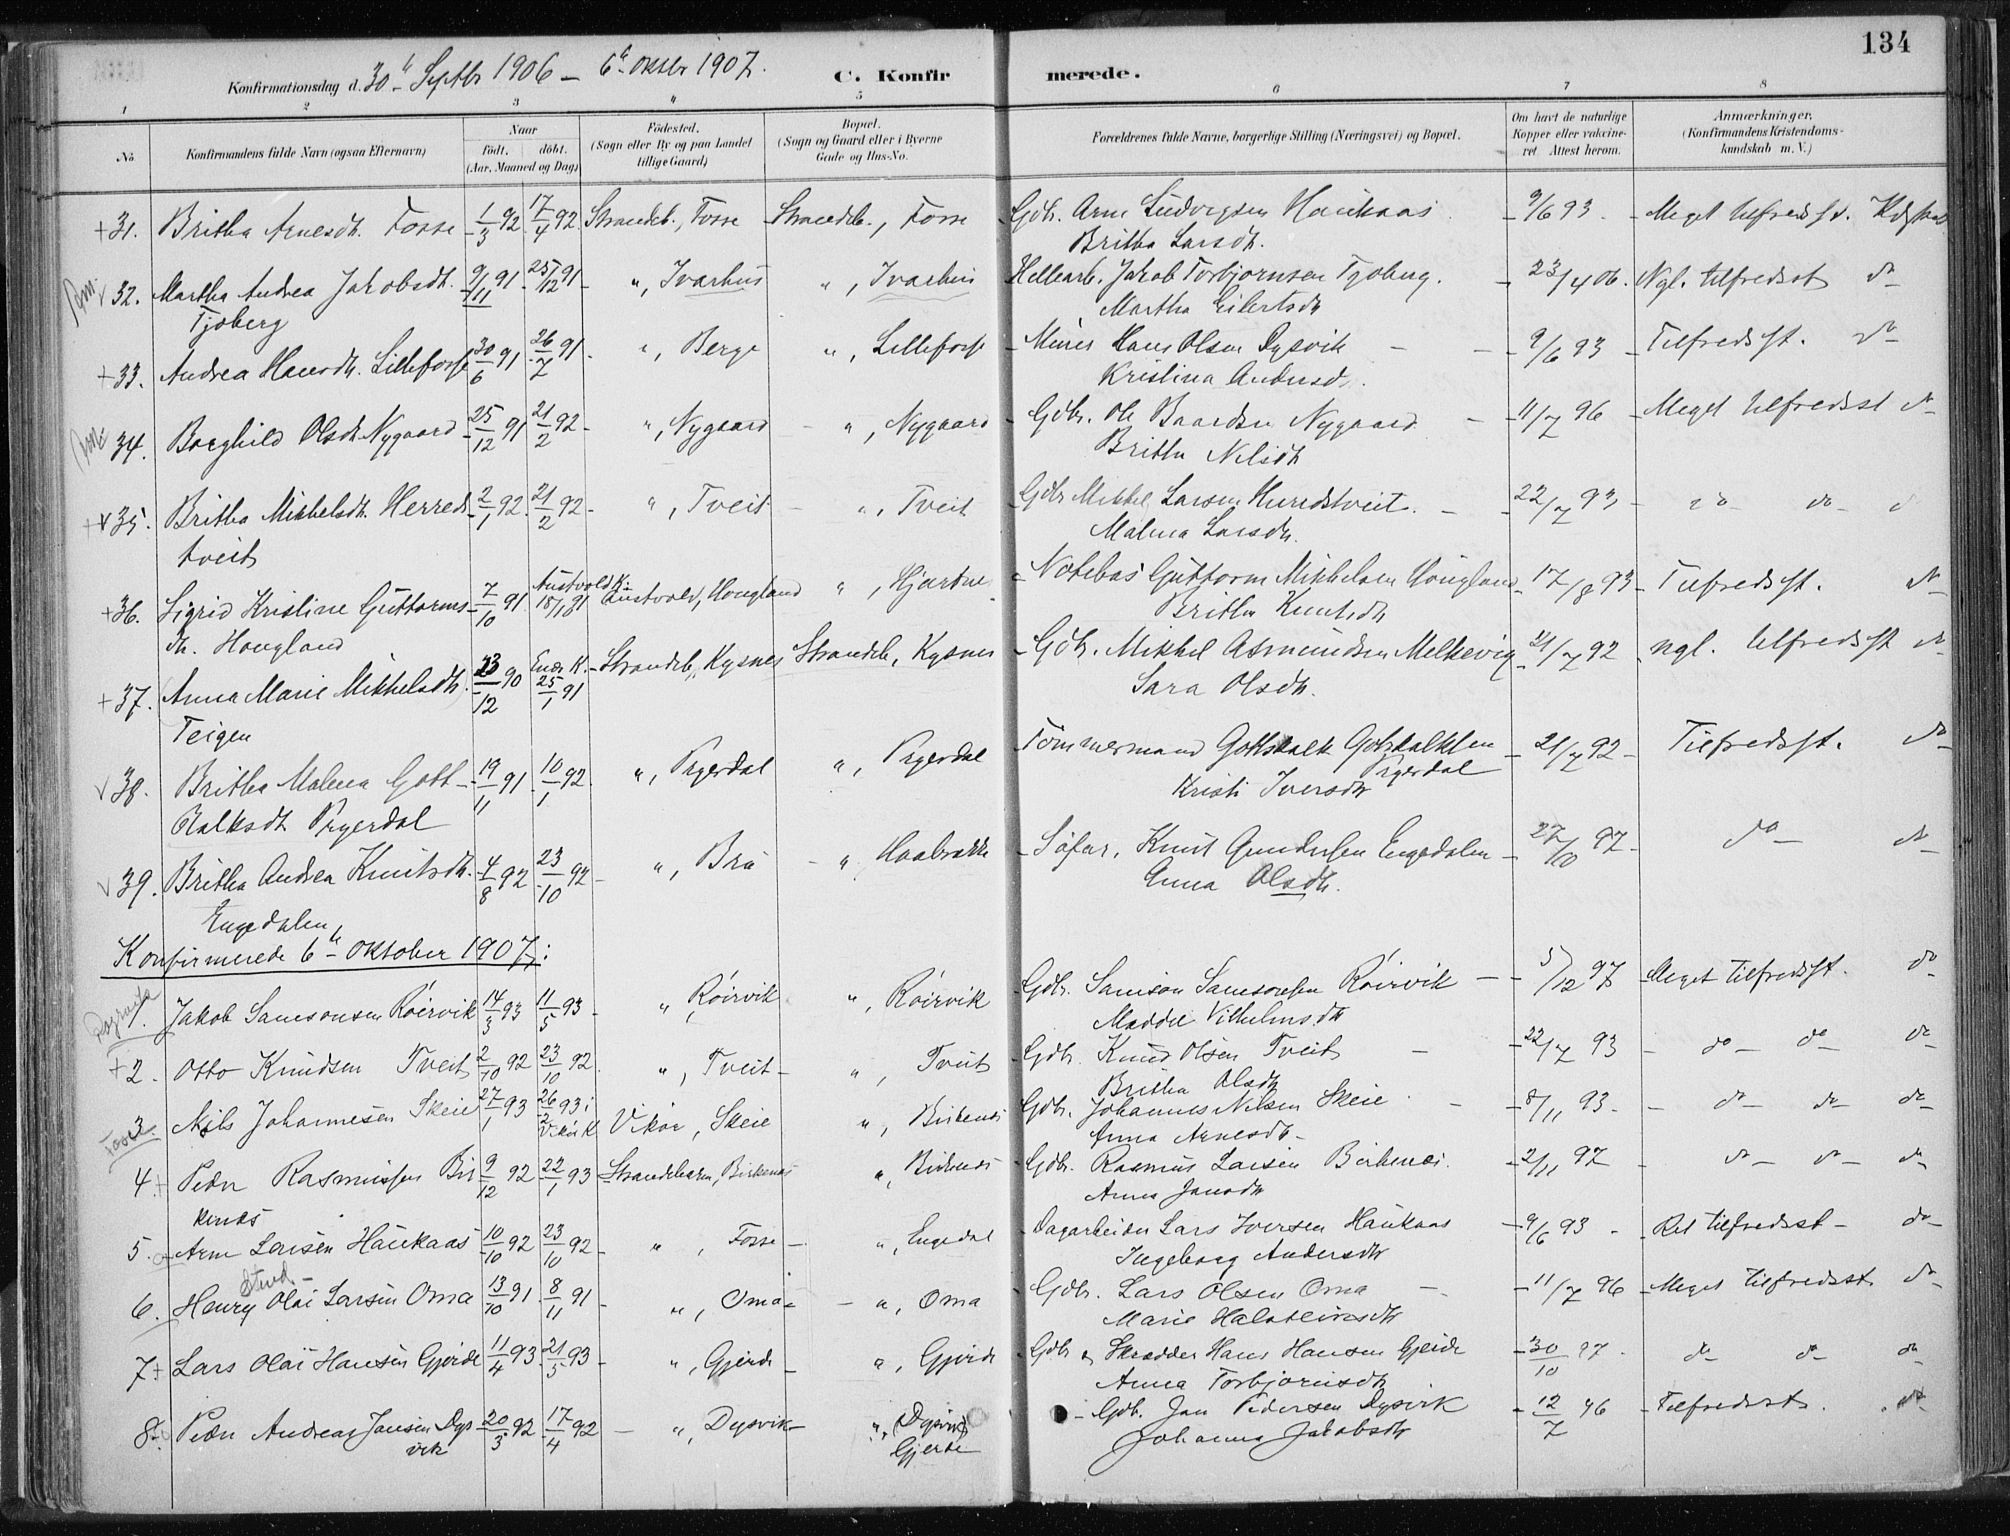 134
Konfirmationsdag d. 30te Septbr 1906 - 6te oktbr 1907.
C. Konfirmerede.
1 2 3 4 5 6 7 8
No
Konfirmandens fulde Navn (ogsaa Efternavn)
Naar
født. døbt.
(Aar, Maaned og Dag)
Fødested.
(Sogn eller By og paa Landet
tillige Gaard)
Bopæl.
(Sogn og Gaard eller i Byerne
Gade og Hus-No.
Forældrenes fulde Navne, borgerlige Stilling (Næringsvei) og Bopæl.
Om havt de naturlige
Kopper eller vakcine-
ret Attest herom.
Anmærkninger.
(Konfirmandens Kristendoms-
kundskab m. V.)
+31. Britha Arnesdtr. Fosse 1/3 92 17/4 92 Strandeb., Fosse Strandeb., Fosse Gdbr. Arne Ludvigsen Haukaas 9/6 93 Meget tilfredsst.
Britha Larsdtr.
32. Martha Andrea Jakobsdtr. 9/11 91 25/12 91 ", Ivarhus ", Ivarhus Hellearb. Jakob Torbjørnsen Tjoberg. 23/4 06. Ngl. tilfredsst do
Tjoberg
Martha Eilertsdtr
+33. Andrea Hansdtr. Lillefosse 30/6 91 26/7 91 ", Berge ", Lillefosse Minér Hans Olsen Dysvik 9/6 93 Tilfredsst. do
Kristina Andersd.
34. Borghild Olsdtr Nygaard 25/12 91 21/2 92 ", Nygaard ", Nygaard Gdbr. Ole Baardsen Nygaard 11/7 96 Meget tilfredsst do
Britha Nilsdtr
+35. Britha Mikkelsdtr. Herreds- 2/1 92 21/2 92 ", Tveit ", Tveit Gdbr Mikkel Larsen Herredstveit. 22/7 93 do do do
tveit
Malena Larsdtr.
+36. Sigrid Kristine Guttorms- 7/10 91 Austvold K. 18/ 91 Austvold, Hougland ", Hjartnes Notebas Guttorm Mikkelsen Hougland 17/8 93 Tilfredsst. do
dtr. Hougland
Britha Knutsdtr
+37. Anna Marie Mikkelsdtr. 23/12 90 25/1 91 Strandeb., Kysnes Strandeb., Kysnes Gdbr. Mikkel Asmundsen Melkevig 21/7 92 ngl. tilfredsst do
Teigen
Sara Olsdtr.
38. Britha Malena Gott- 19/11 91 10/1 92 ", Prgerdal ", Prgerdal Tømmermand Gottskalk Gottskalksen 21/7 92 Tilfredsst. do
skalksdtr Prgerdal
Prgerdal
Kristi Iversdtr
39. Britha Andrea Knutsdtr. 4/8 92 23/10 92 ", Bru ", Haabrekke Søfar. Knut Gundersen Engedalen 27/10 97 do do
Engedalen
Anna Olsdtr.
Konfirmerede 6te oktober 1907:
1. Jakob Samsonsen Røirvik 14/3 93 11/5 93 ", Røirvik ", Røirvik Gdbr. Samson Samsonsen Røirvik 5/12 97 Meget tilfredsst. do
Maddel Vilhelmsdtr
+2. Otto Knudsen Tveit 2/10 92 23/10 92 ", Tveit ", Tveit Gdbr. Knud Olsen Tveit 22/7 93 do do do
Britha Olsdtr
3. Nils Johannesen Skeie 27/1 93 26/2 93 i Vikør K Vikør, Skeie ", Birkenes Gdbr. Johannes Nilsen Skeie 8/11 93 do do do
Anna Arnesdtr
4. Peder Rasmussen Bir 9/12 92 22/1 93 Strandebarm, Birkenes ", Birkenes Gdbr. Rasmus Larsen Birkenes. 2/11 97 do do do
kenes
Anna Jansdtr
5. Arne Larsen Haukaas 10/10 92 23/10 92 ", Fosse ", Engedal Dagarbeider Lars Iversen Haukaas 9/6 93 Ret tilfredsst do
Ingeborg Andersdtr
Stud.
6. Henry Olai Larsen Oma 13/10 91 8/11 91 ", Oma ", Oma Gdbr. Lars Olsen Oma 11/7 96 Meget tilfredsst. do
Marie Halsteinsdtr
7+ Lars Olai Hansen Gjerde 11/4 93 21/5 93 ", Gjerde ", Gjerde Gdbr & Skrædder Hans Hansen Gjerde 30/10 97 do do do
Anna Torbjørnsdtr
8. Peder Andreas Jansen Dys 20/3 92 17/4 92 ", Dysvik ", (Dysvik) Gjerde Gdb. Jan Pedersen Dysvik 12/7 96 Tilfredsst. do
vik
Johanna Jakobsdtr